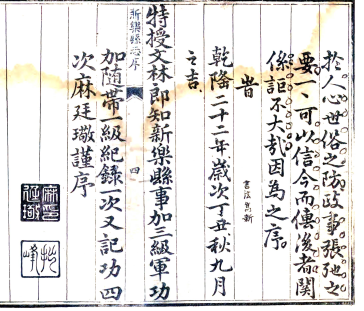 於人心世俗之防政事張弛之
要一一可以信今而傳後者關
係詎不大哉因為之序
旹
乾隆二十二年歲次丁丑秋九月
之吉
新樂縣志序
四
特授文林郎知新樂縣事加三級軍功
加隨帶一級紀錄一次又記功四
次麻廷璥謹序